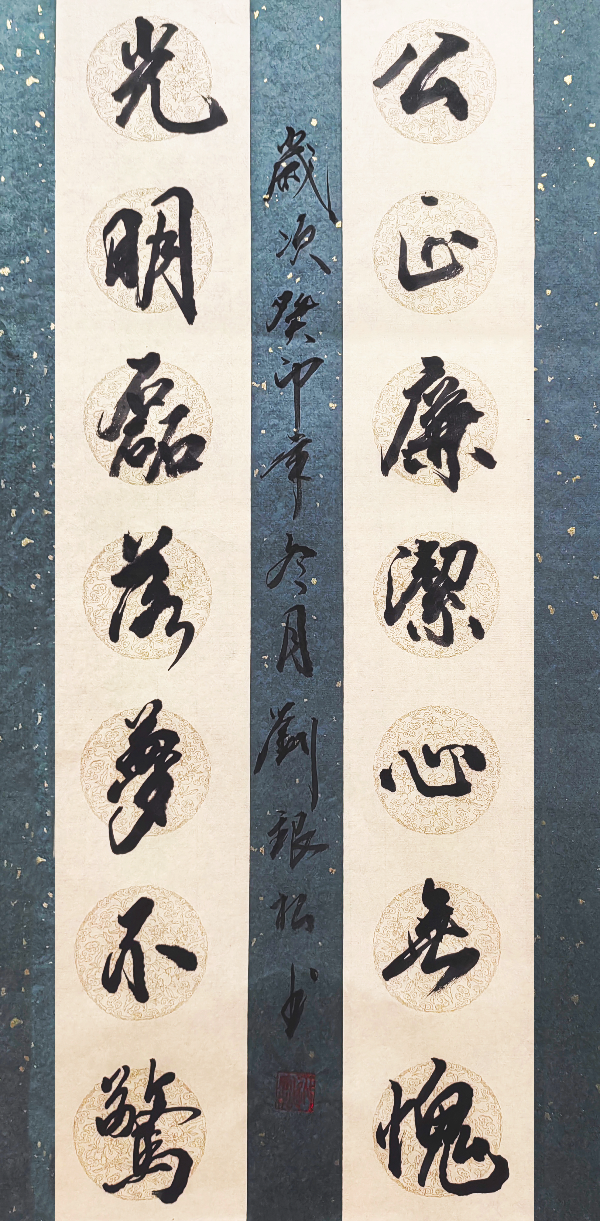 公正廉潔心無愧
光明磊落夢不驚
歲次癸卯年冬月劉銀松書